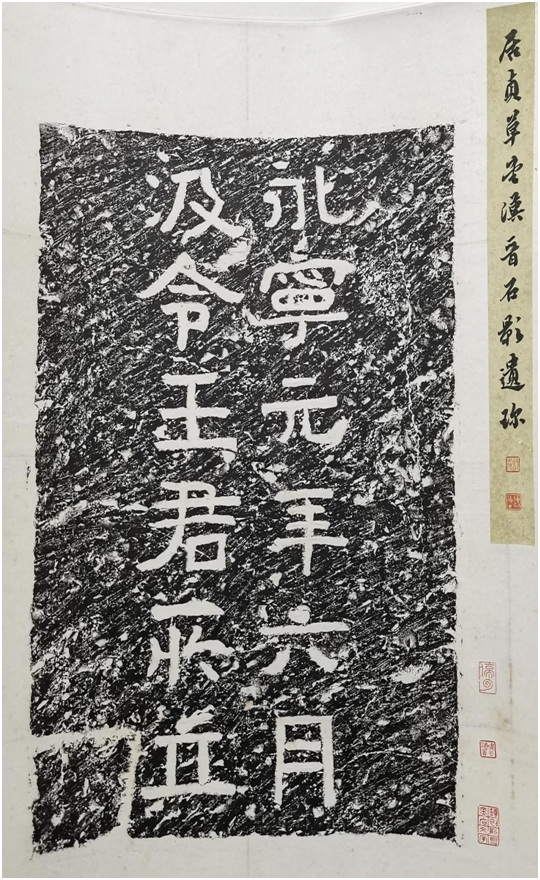 居貞草堂漢晉石影遺珍
永寧元年六月
汲令王君所立